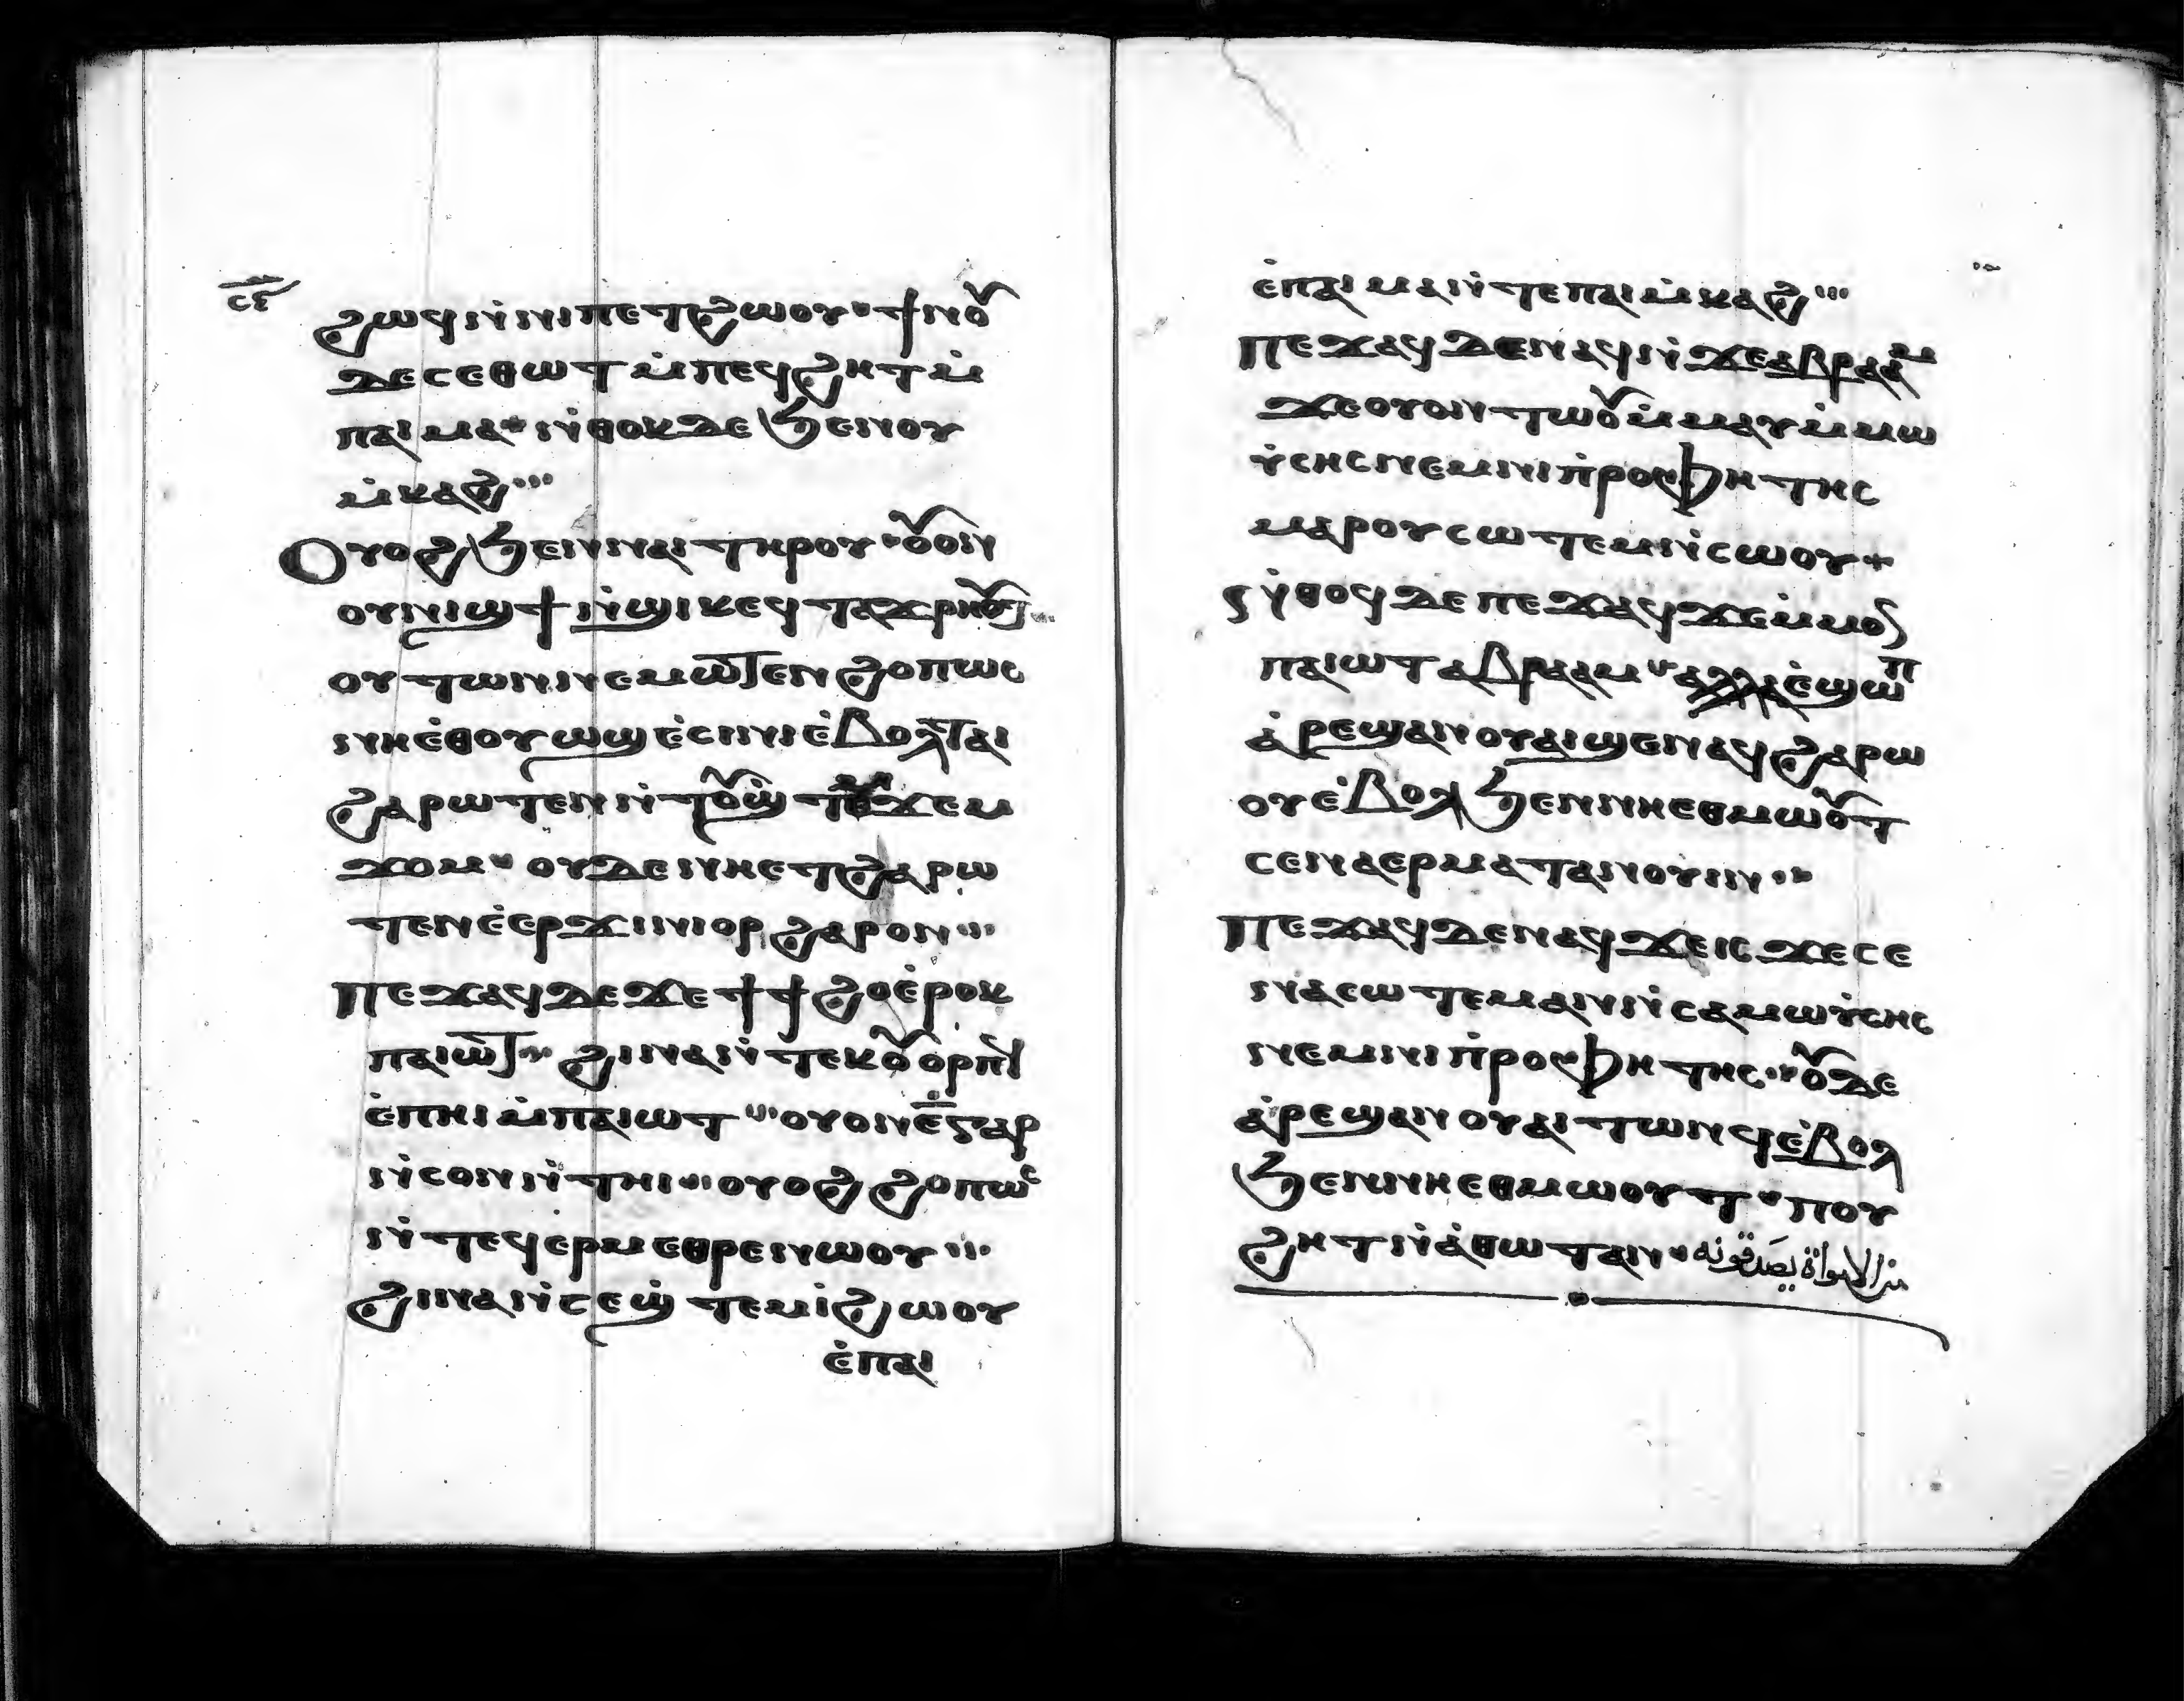 ⲥⲉ
ϩⲱϥ ⲛ̀ⲛⲓⲡⲉⲧϩⲱⲟⲩ ϯⲛⲟⲩ
ⲇⲉ ⲥⲉⲑⲱⲧ ⲙ̀ⲡⲉϥϩⲏⲧ ⲙ̀
ⲡⲁⲓⲙⲁ ⲛ̀ⲑⲟⲕ ⲇⲉ ϧⲉⲛ ⲟⲩ
ⲙ̀ⲕⲁϩ
Ⲟⲩⲟϩ ϧⲉⲛ ⲛⲁⲓ ⲧⲏⲣⲟⲩ ⲟⲩⲟⲛ
ⲟⲩⲛⲓϣϯ ⲛ̀ϣⲓⲕ ⲉϥⲧⲁϫⲣⲏⲟⲩⲧ
ⲟⲩⲧⲱⲛ ⲛⲉⲙⲱⲧⲉⲛ ϩⲟⲡⲱⲥ
ⲛⲏⲉ̀ⲑⲟⲩⲱϣ ⲉ̀ⲥⲓⲛⲓ ⲉ̀ⲃⲟⲗ ⲧⲁⲓ
ϩⲁⲣⲱⲧⲉⲛ ⲛ̀ⲧⲟⲩϣ̀ⲧⲉⲙϫⲉⲙ
ϫⲟⲙ ⲟⲩⲇⲉ ⲛⲏⲉⲧϩⲁⲣⲱ
ⲧⲉⲛ ⲉ̀ⲉⲣϫⲓⲛⲓⲟⲣ ϩⲁⲣⲟⲛ
Ⲡⲉϫⲁϥ ⲇⲉ ϫⲉ ϯϯϩⲟ ⲉ̀ⲣⲟⲕ
ⲡⲁⲓⲱⲧ ϩⲓⲛⲁ ⲛ̀ⲧⲉⲕⲟⲩⲟⲣⲡϥ
ⲉ̀ⲡⲏⲓ ⲙ̀ⲡⲁⲓⲱⲧ ⲟⲩⲟⲛ ⲉ̅ ⲅⲁⲣ
ⲛ̀ⲥⲟⲛ ⲛ̀ⲧⲏⲓ ⲟⲩⲟϩ ϩⲟⲡⲱⲥ
ⲛ̀ⲧⲉϥⲉⲣⲙⲉⲑⲣⲉ ⲛⲱⲟⲩ
ϩⲓⲛⲁ ⲛ̀ⲥⲉϣ̀ⲧⲉⲙⲓ̀ ϩⲱⲟⲩ
ⲉ̀ⲡⲁⲓ
ⲉ̀ⲡⲁⲓⲙⲁ ⲛ̀ⲧⲉ ⲡⲁⲓⲙ̀ⲕⲁϩ
Ⲡⲉϫⲁϥ ⲇⲉ ⲛⲁϥ ⲛ̀ϫⲉ ⲁⲃⲣⲁⲁⲙ
ϫⲉ ⲟⲩⲟⲛⲧⲱⲟⲩ ⲙ̀ⲙⲁⲩ ⲙ̀ⲙⲱ
ⲩ̀ⲥⲏⲥ ⲛⲉⲙ ⲛⲓⲡ̀ⲣⲟⲫⲏⲧⲏⲥ
ⲙⲁⲣⲟⲩⲥⲱⲧⲉⲙ ⲛ̀ⲥⲱⲟⲩ
Ⲛ̀ⲑⲟϥ ⲇⲉ ⲡⲉϫⲁϥ ϫⲉ ⲙ̀ⲙⲟⲛ
ⲡⲁⲓⲱⲧ ⲁⲃⲣⲁⲁⲙ ⲁⲗⲗⲁ ⲉ̀ϣⲱⲡ
ⲁ̀ⲣⲉϣⲁⲛ ⲟⲩⲁⲓ ϣⲉⲛⲁϥ ϩⲁⲣⲱ
ⲟⲩ ⲉ̀ⲃⲟⲗ ϧⲉⲛ ⲛⲏⲉⲑⲙⲱⲟⲩⲧ
ⲥⲉⲛⲁⲉⲣⲙⲁⲧⲁⲛⲟⲓⲛ
Ⲡⲉϫⲁϥ ⲇⲉ ⲛⲁϥ ϫⲉ ⲓⲥϫⲉ ⲥⲉ
ⲛⲁⲥⲱⲧⲉⲙ ⲁⲛ ⲛ̀ⲥⲁ ⲙⲱⲩ̀ⲥⲏⲥ
ⲛⲉⲙ ⲛⲓⲡ̀ⲣⲟⲫⲏⲧⲏⲥ ⲟⲩⲇⲉ
ⲁ̀ⲣⲉϣⲁⲛ ⲟⲩⲁⲓ ⲧⲱⲛϥ ⲉ̀ⲃⲟⲗ
ϧⲉⲛ ⲛⲏⲉⲑⲙⲱⲟⲩⲧ ⲡⲟⲩ
ϩⲏⲧ ⲛⲁ̀ⲑⲱⲧ ⲁⲛ من الاموات يصدقونه